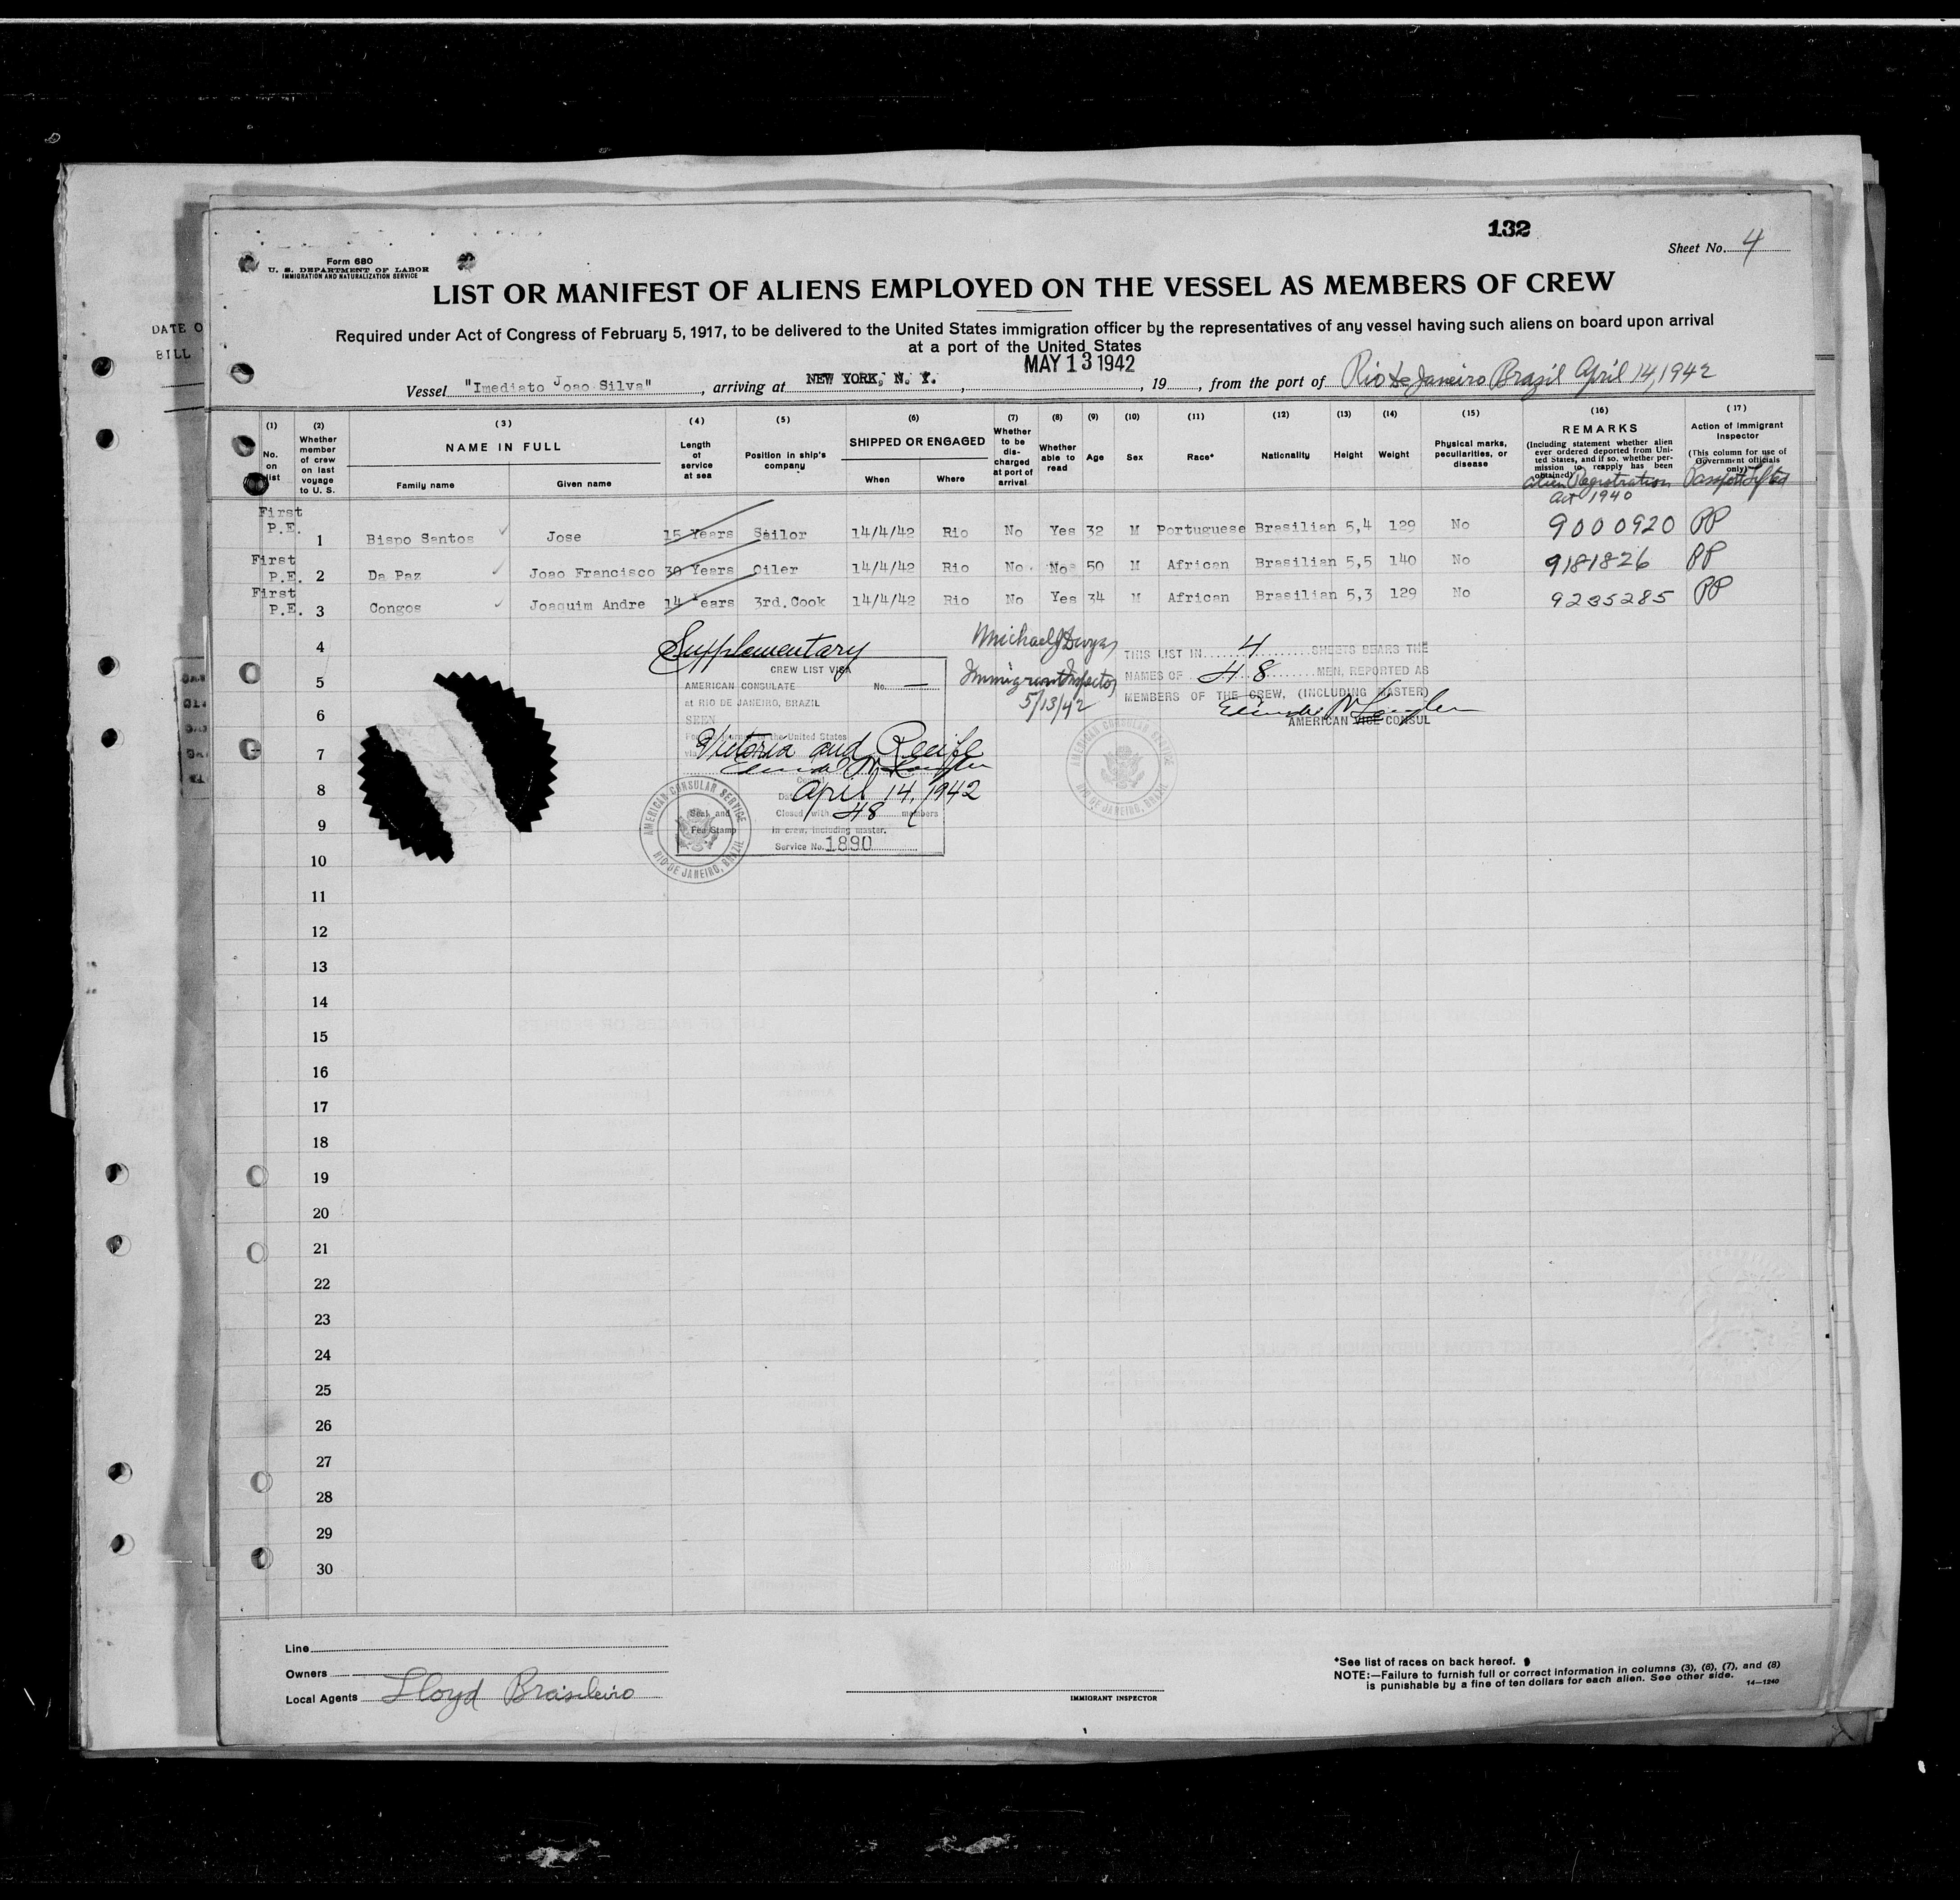 132
Sheet No. 4
Form 680
U. S. DEPARTMENT OF LABOR
IMMIGRATION AND NATURALIZATION SERVICE
LIST OR MANIFEST OF ALIENS EMPLOYED ON THE VESSEL AS MEMBERS OF CREW
Required under Act of Congress of February 5, 1917, to be delivered to the United States immigration officer by the representatives of any vessel having such aliens on board upon arrival
at a port of the United States
DATE O
BILL
MAY 13 1942
Vessel "Imediato Joao Silva", arriving at NEW YORK, N. Y., 19, from the port of Rio de Janeiro Brazil April 14, 1942
(1) No. on list
(2) Whether member of crew on last voyage to U. S.
(3) NAME IN FULL
Family name Given name
(4) Length of service at sea
(5) Position in ship's company
(6) SHIPPED OR ENGAGED
When Where
(7) Whether to be discharged at port of arrival
(8) Whether able to read
(9) Age
(10) Sex
(11) Race*
(12) Nationality
(13) Height
(14) Weight
(15) Physical marks, peculiarities, or disease
(16) REMARKS
(Including statement whether alien ever ordered deported from United States, and if so, whether permission to reapply has been obtained)
Alien Registration
Act 1940
(17) Action of Immigrant Inspector
(This column for use of Government officials only)
Passport Lifted
First P.E. 1 Bispo Santos Jose 15 Years Sailor 14/4/42 Rio No Yes 32 M Portuguese Brasilian 5,4 129 No 9000920 PP
First P.E. 2 Da Paz Joao Francisco 30 Years Oiler 14/4/42 Rio No No 50 M African Brasilian 5,5 140 No 9181826 PP
First P.E. 3 Congos Joaquim Andre 14 Years 3rd.Cook 14/4/42 Rio No Yes 34 M African Brasilian 5,3 129 No 9235285 PP
4
5
6
7
8
9
10
11
12
13
14
15
16
17
18
19
20
21
22
23
24
25
26
27
28
29
30
Supplementary
CREW LIST VISA
AMERICAN CONSULATE No. —
at RIO DE JANEIRO, BRAZIL
SEEN
For journey to the United States
via Victoria and Recife
Consul
Date April 14, 1942
Closed with 48 members
in crew, including master.
Service No. 1890
Seal and
Fee Stamp
AMERICAN CONSULAR SERVICE
RIO DE JANEIRO, BRAZIL
Michael J Dwyer
Immigrant Inspector
5/13/42
THIS LIST IN 4 SHEETS BEARS THE
NAMES OF 48 MEN, REPORTED AS
MEMBERS OF THE CREW, (INCLUDING MASTER)
AMERICAN VICE CONSUL
AMERICAN CONSULAR SERVICE
RIO DE JANEIRO, BRAZIL
Line
Owners
Local Agents Lloyd Brasileiro
IMMIGRANT INSPECTOR
*See list of races on back hereof.
NOTE:—Failure to furnish full or correct information in columns (3), (6), (7), and (8)
is punishable by a fine of ten dollars for each alien. See other side.
14—1240